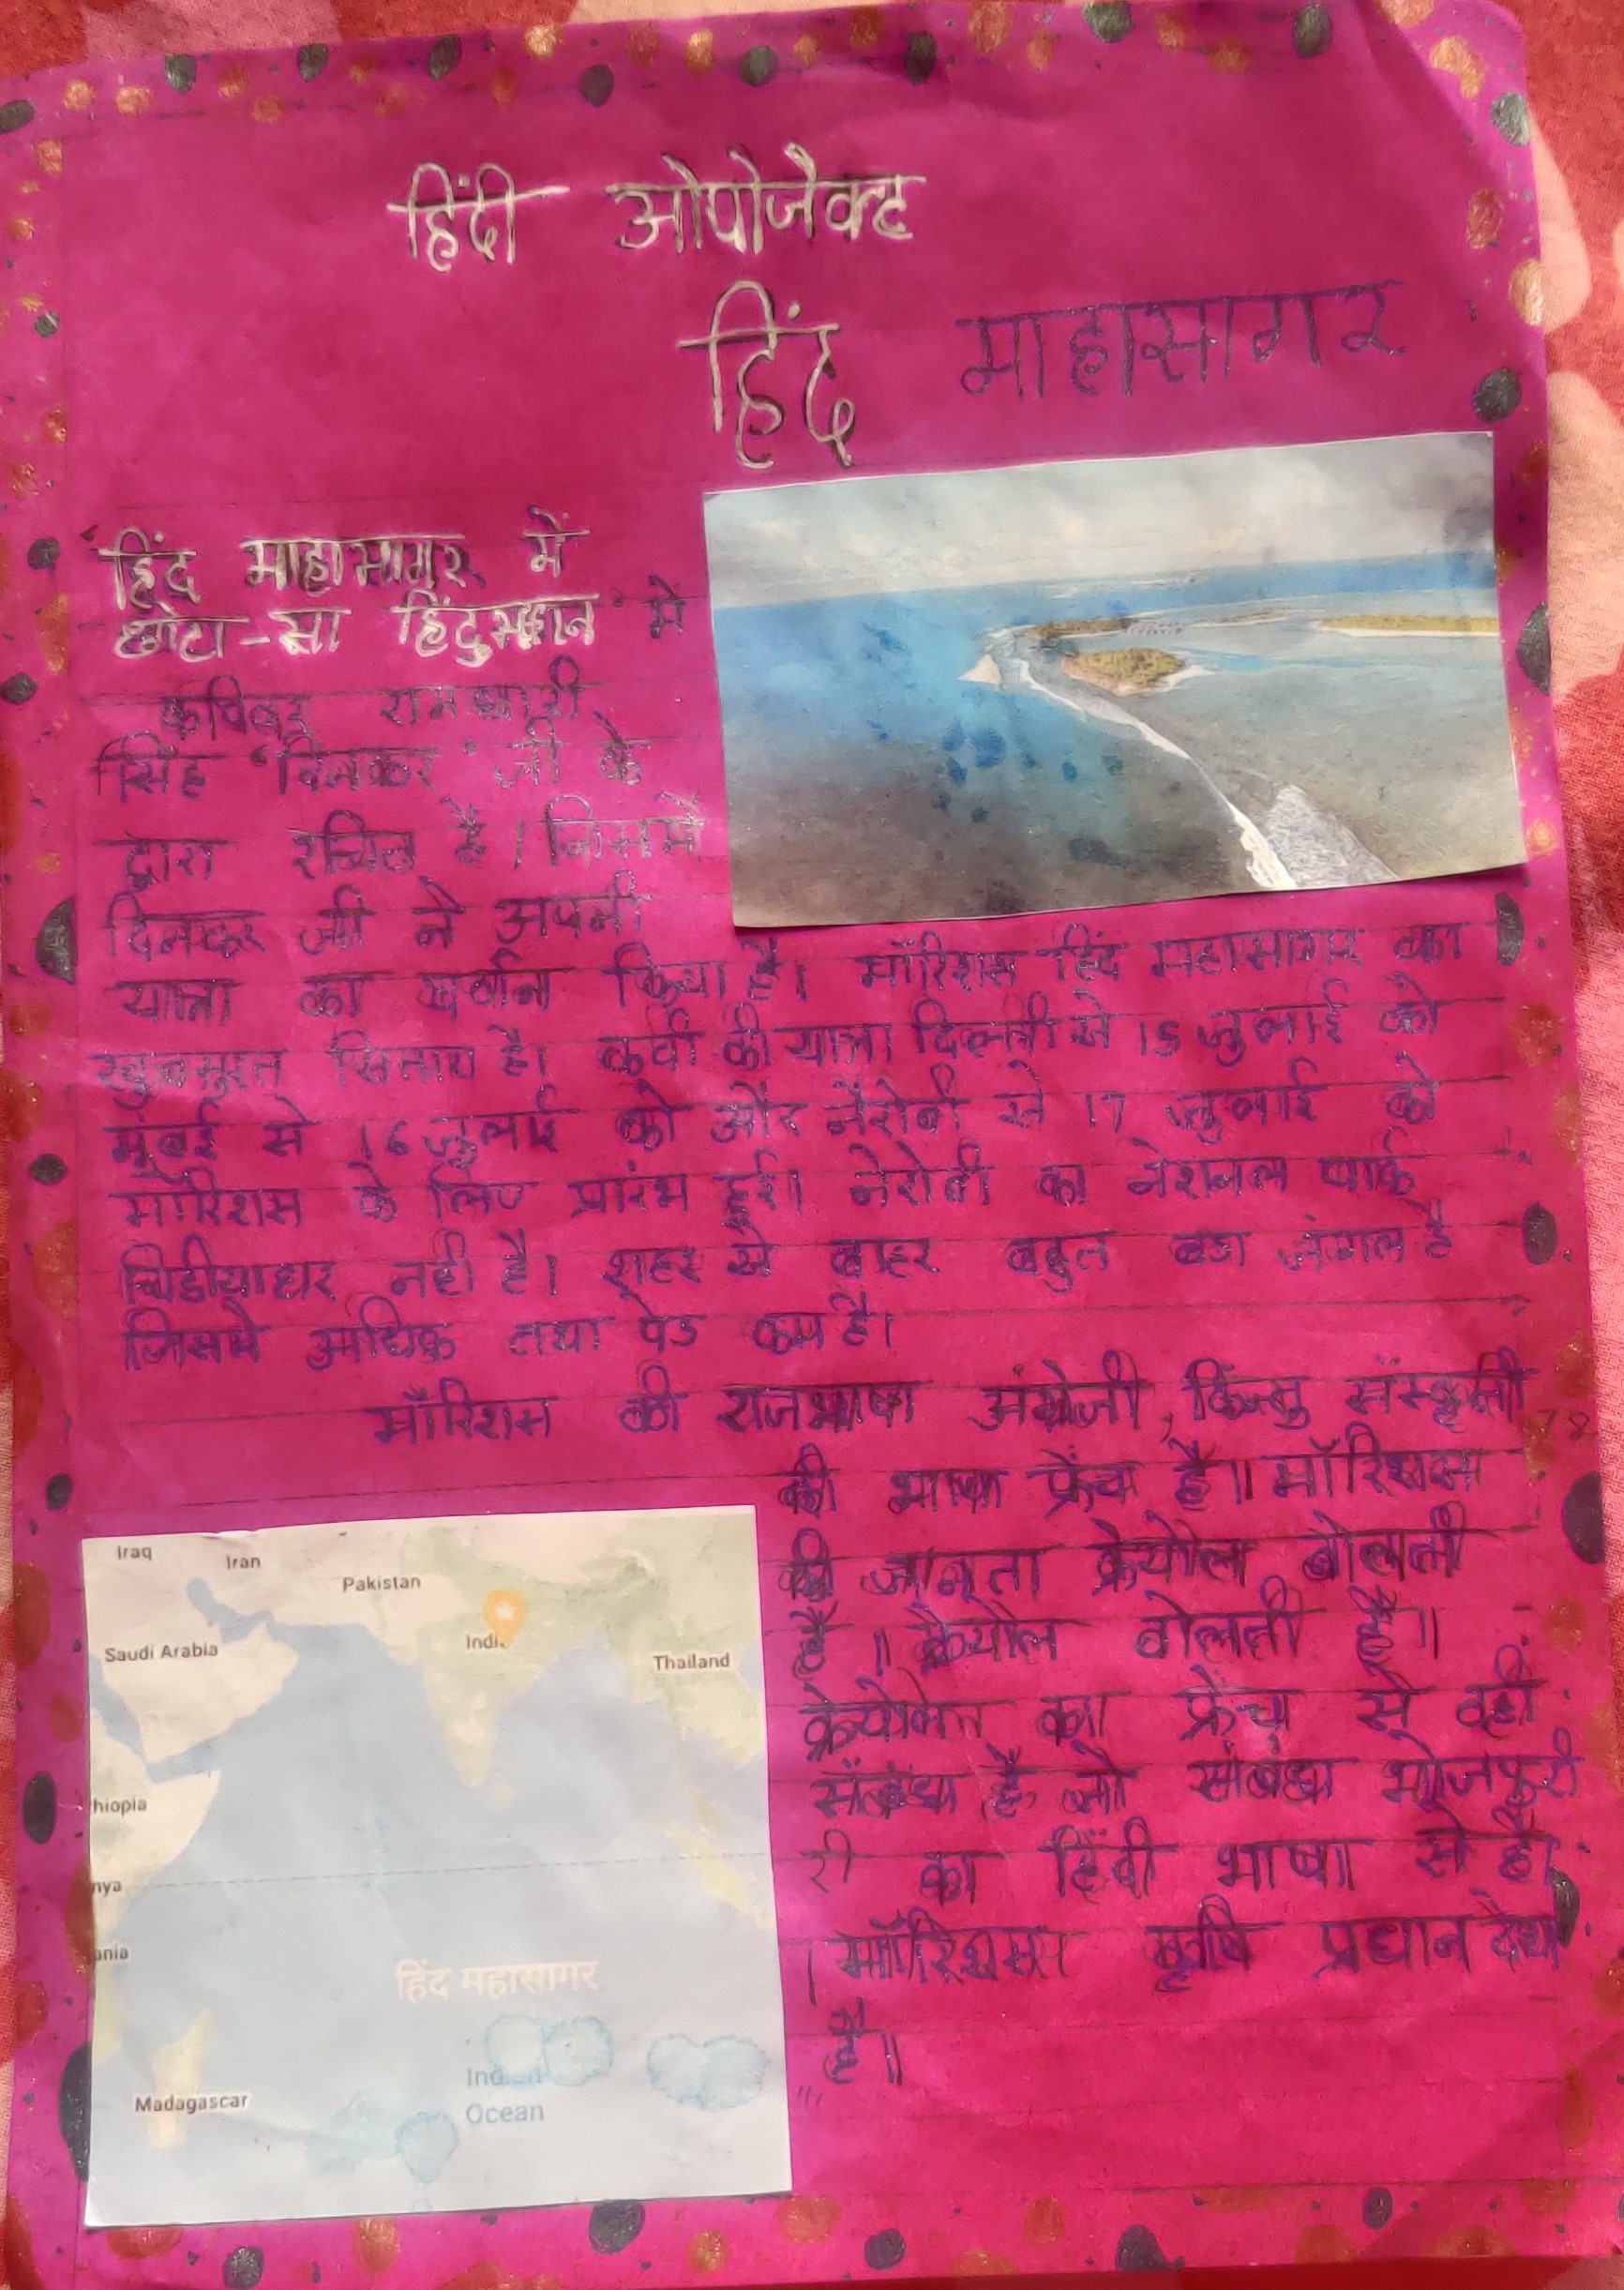 हिंदी ओपोजेक्ट
हिंद माहासागर
हिंद माहासागर में
छोटा-सा हिंदुस्तान में
कविवर रामधारी
सिंह 'दिनकर' जी के
द्वारा रचित है। जिसमें
दिनकर जी ने अपनी
यात्रा का वर्णन किया है। मॉरिशस हिंद महासागर का
खुबसुरत सितारा है। कवी की यात्रा दिल्ली से 15 जुलाई को
मुंबई से 16 जुलाई को और नैरोबी से 17 जुलाई को
मॉरिशस के लिए प्रारंभ हुई। नेरोबी का नेशनल पार्क
चिडीयाघर नही है। शहर से बाहर बहुत बडा जंगल है
जिसमे अधिक तथा पेड कम है।
मॉरिशस की राजभाषा अंग्रेजी, किन्तु संस्कृती
की भाषा फ्रेंच है॥ मॉरिशस
की जानता क्रेयोल बोलती
है॥ क्रेयोल बोलती है॥
क्रेयोल का फ्रेंच से वही
संबंध है, जो संबंध भोजपुरी
री का हिंदी भाषा से है।
। मॉरिशस कृषि प्रधान देश
है॥
Iraq
Iran
Pakistan
India
Saudi Arabia
Thailand
hiopia
nya
ania
हिंद महासागर
Indian
Ocean
Madagascar